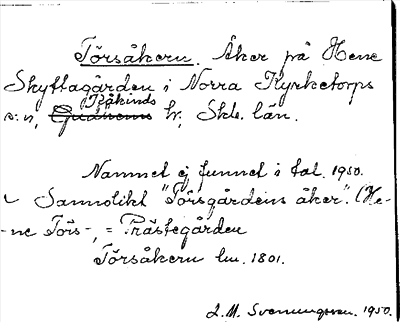 Törsåkern. Åker på Hene
Skyttagården i Norra Kyrketorps
Kåkinds
s:n, Gudhems hr, Skbl. län.
Namnet ej funnet i tal. 1950.
Sannolikt "Törsgårdens åker". (He-
-ne Törs-, = Prästegården
Törsåkern lm. 1801.
J. M. Svenungsson. 1950.